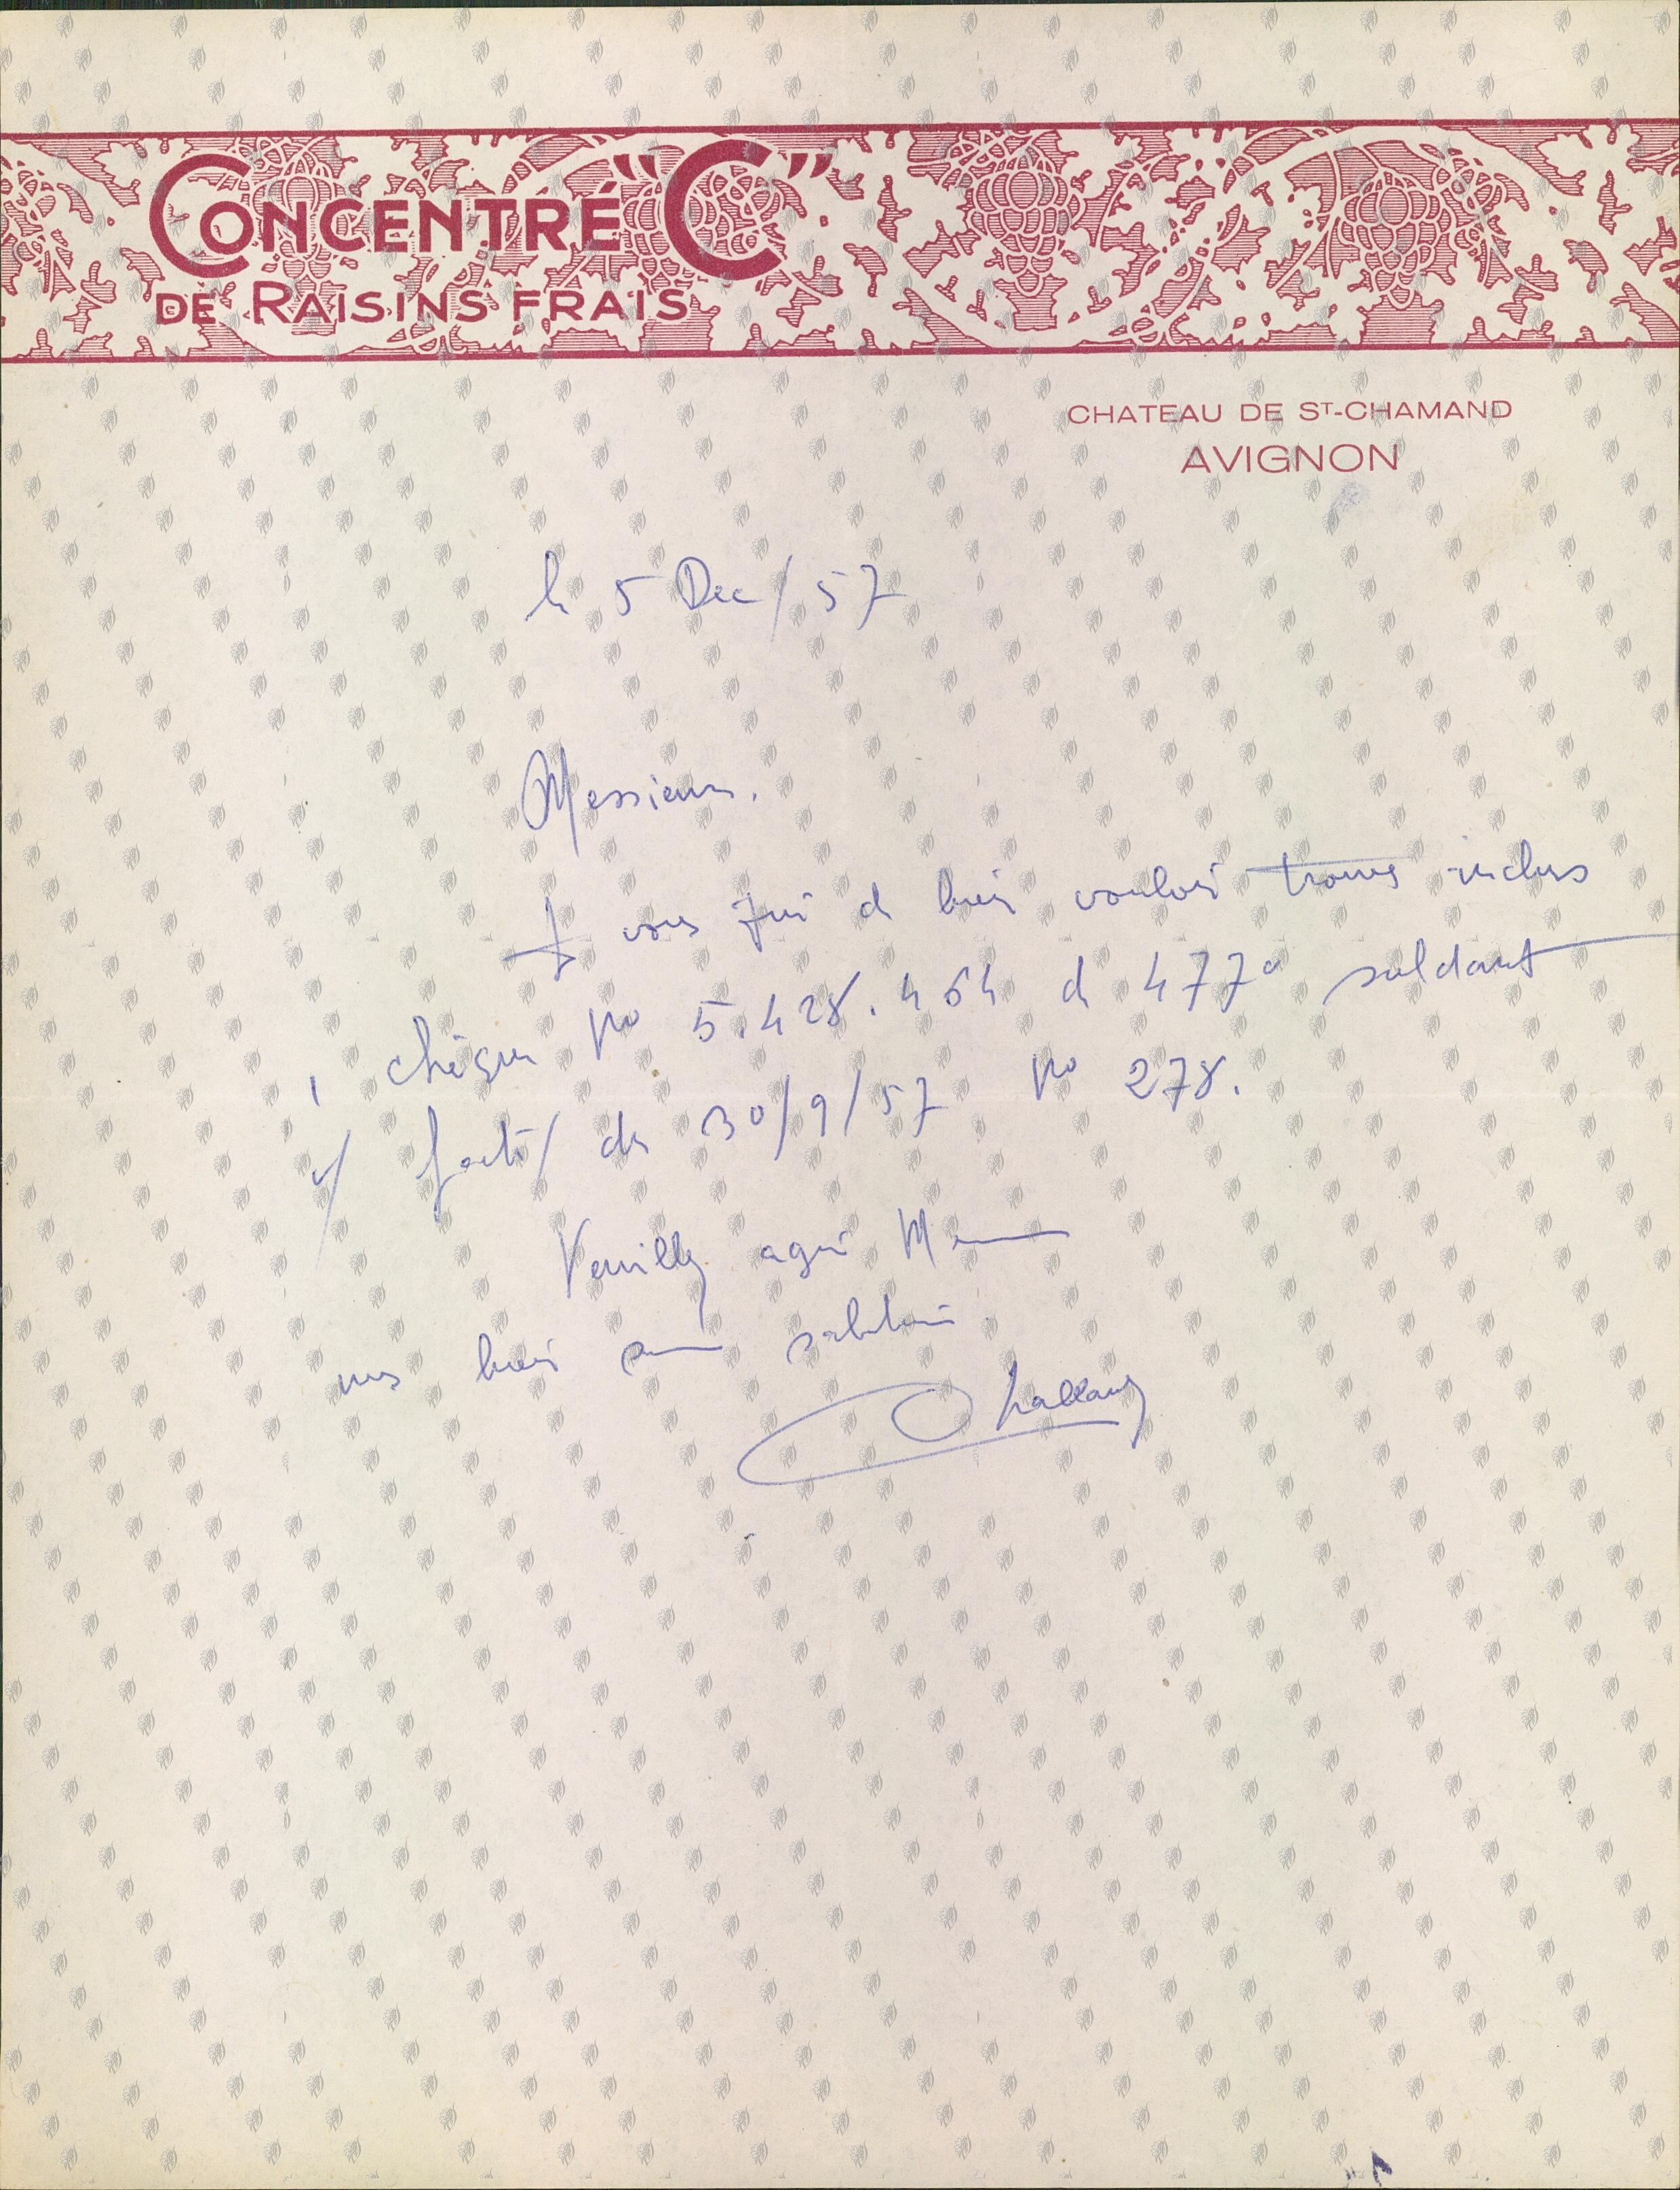 CONCENTRÉ "C"
DE RAISINS FRAIS
CHATEAU DE ST-CHAMAND
AVIGNON
le 5 Dec/57
Messieurs.
Je vous prie de bien vouloir trouver inclus
1 chèque No 5.428.464 de 477
soldant
v/ fact/ du 30/9/57 No 278.
Veuillez agréer Messieurs
nos bien salutations.